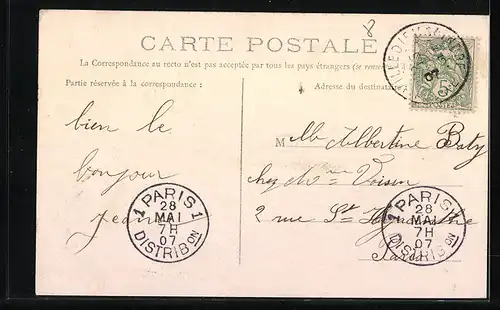 8
CARTE POSTALE
La Correspondance au recto n'est pas acceptée par tous les pays étrangers (se rens
Partie réservée à la correspondance :
Adresse du destinata
bien le
bonjour
Jean
M Albertine Baty
chez Mme Voisin
2 rue St Hyacinthe
Paris
PARIS 1
28
MAI
7H
07
DISTRIBON
1 PARIS
28
MAI
7H
07
DISTRIBON
07
5